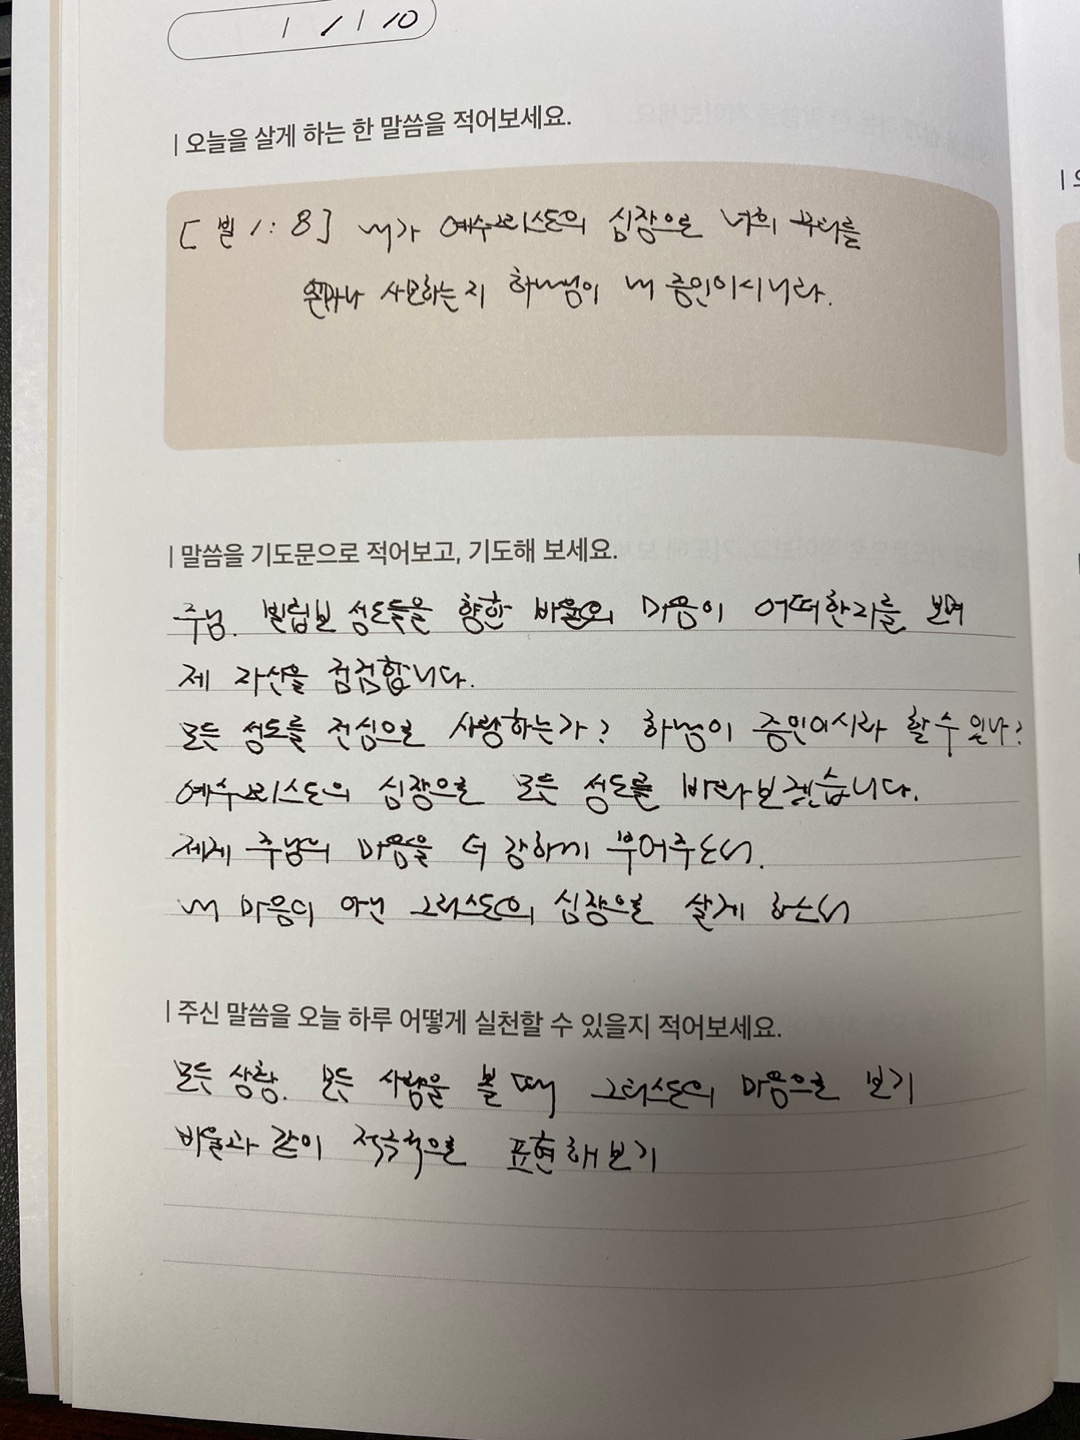 1 / 10
| 오늘을 살게 하는 한 말씀을 적어보세요.
[빌 1:8] 내가 예수그리스도의 심장으로 너희 무리를
얼마나 사모하는지 하나님이 내 증인이시니라.
| 말씀을 기도문으로 적어보고, 기도해 보세요.
주님. 빌립보 성도들을 향한 바울의 마음이 어떠한지를 보며
제 자신을 점검합니다.
모든 성도를 전심으로 사랑하는가? 하나님이 증인이시라 할 수 있나?
예수그리스도의 심장으로 모든 성도를 바라보겠습니다.
제게 주님의 마음을 더 강하게 부어주소서.
내 마음이 아닌 그리스도의 심장으로 살게 하소서
| 주신 말씀을 오늘 하루 어떻게 실천할 수 있을지 적어보세요.
모든 상황. 모든 사람을 볼 때 그리스도의 마음으로 보기
바울과 같이 적극적으로 표현해보기